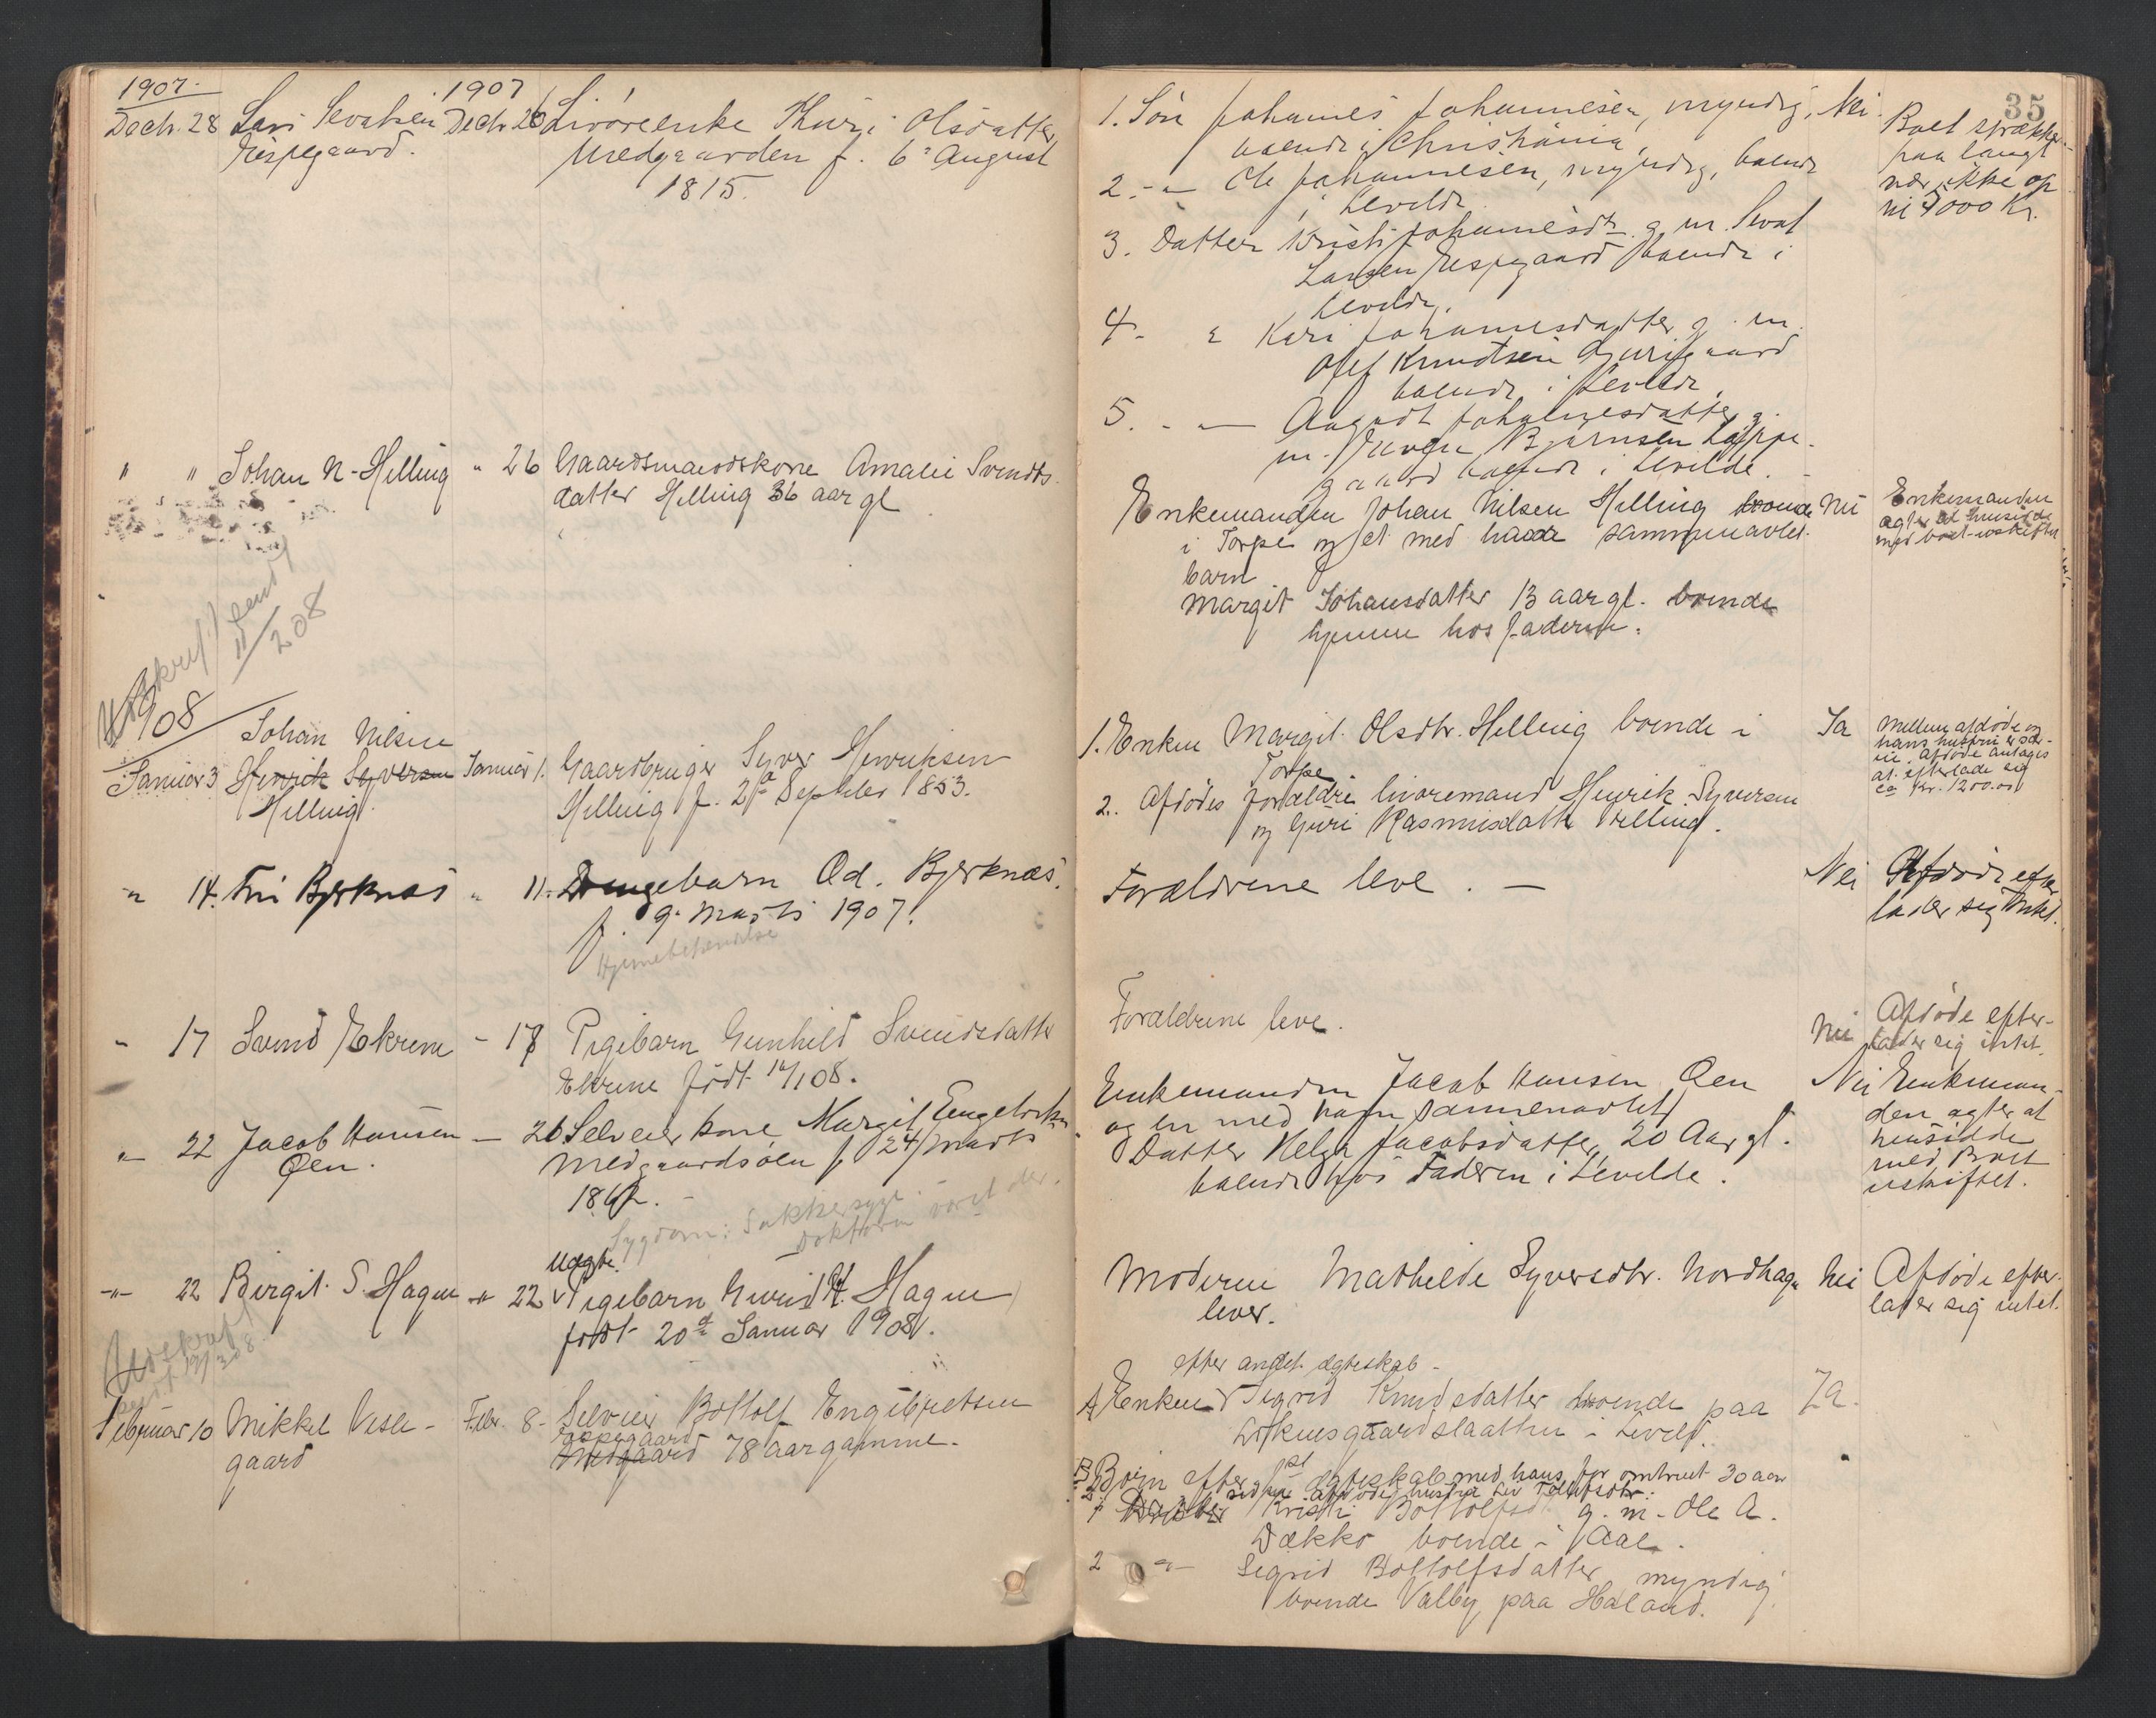 1907.
1907
Decbr. 28 Lars Sevatsen Decbr. 26 Livøreenke Thuri Olsdatter
Espegaard. Medgaarden f. 6te August
1815.
35
1. Søn Johannes Johannesen, myndig, Nei.
boende i Christiania,
2. -"- Ole Johannesen, myndig, boende
i Levelde
3. Datter Kristi Johannesdtr. g. m. Sevat
Larsen Espegaard boende i
Levelde.
4. " Kari Johannesdatter g. m.
Olef Knudtsen Gurigaard
boende i Levelde.
5. -"- Aagodt Johannesdatter g.
m. Bjørnsen
gaard boende i Levilde.
Boet
paa langt
nær ikke op
til 4000 Kr.
" " Johan N. Helling " 26 Gaardmandskone Amalie Svends
datter Helling 36 aar gl
Enkemanden Johan Nilsen Helling boende Nei
i Torpe og et med hade sammenavlet
barn
Margit Johansdatter 13 aar gl. boende
hjemme hos faderen.
Enkemanden
agter at hensidde
med boet uskiftet
11/2 08
1908
Johan Nilsen
Januar 3 Henrik Syversen Januar 1. Gaardbruger Syver Henriksen
Helling Helling f. 2de Septbr 1853.
1. Enken Margit Olsdtr. Helling boende i Ja
Torpe
2. Afdødes forældre livøremand Henrik Syversen
og Guri Rasmusdatter Helling.
Mellem afdøde og
hans hustru er
Afdøde antages
at efterlade sig
ca Kr. 1200.00
" 14. Tri Bjerknæs " 11. Drengebarn Od. Bjerknæs.
f. 9. Marts 1907.
Hjernebetændelse
Forældrene leve. — Nei Afdøde efter
lader sig Intet.
" 17 Svend Ekrene - 17 Pigebarn Gunhild Svendsdatter
Ekrene født 14/1 08.
Forældrene leve. Nei Afdøde efter-
lader sig intet.
" 22 Jacob Hansen — 20 Selveier kone Margit Engebretsd
Øen. Medgaardsøen f 24/Marts
1862. -
Sygdom: Sukkersyge.
Doktoren været der.
Enkemanden Jacob Hansen Øen Nei
og en med ham sammenavlet
Datter Helga Jacobsdatter, 20 Aar gl.
boende hos Faderen i Levelde.
Enkeman-
den agter at
hensidde
med Boet
uskiftet.
uægte
-"- 22 Birgit S. Hagen -"- 22 Pigebarn Guri H. Hagen
født 20de Januar 1908.
Moderen Mathilde Syversdtr. Nordhagen Nei Afdøde efter-
lever. lader sig intet.
Udskrift
sendt 19/3 08
Februar 10 Mikkel Vesle- Febr. 8. Selveier Bottolf Engebretsen
gaard Espegaard
Medgaard 78 aar gamme.
efter andet ægteskab -
A Enken Sigrid Knudsdatter boende paa Ja.
i Leveld.
B Børn efter 1st ægteskab med hans for omtrent 30 aar
siden afdøde hustru Liv
1 Datter Kristi Bottolfsd g. m. Ole A.
Dokko boende i Aal.
2 -"- Sigrid Bottolfsdatter myndig
boende Valby paa Haland.